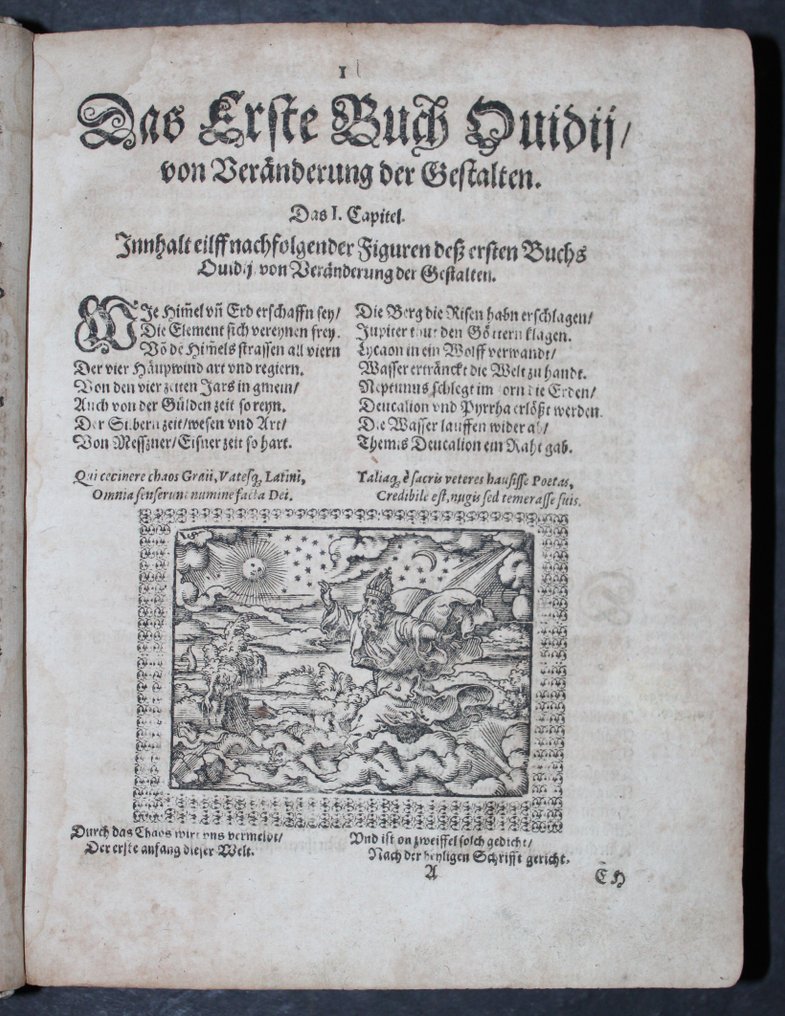 1
Das Erste Buch Ouidij/
von Veränderung der Gestalten.
Das I. Capitel.
Innhalt eilff nachfolgender Figuren deß ersten Buchs
Ouidij von Veränderung der Gestalten.
WIe Him̃el vñ Erd erschaffn sey/
Die Element sich vereynen frey.
Võ de Him̃els strassen all viern
Der vier Häupwind art vnd regiern.
Von den vier zeiten Jars in gmein/
Auch von der Gülden zeit so reyn.
Der Silbern zeit/wesen vnd Art/
Von Messzner/Eisner zeit so hart.
Die Berg die Risen habn erschlagen/
Jupiter thut den Göttern klagen.
Lycaon in ein Wolff verwandt/
Wasser ertränckt die Welt zu handt.
Neptunus schlegt im zorn die Erden/
Deucalion vnd Pyrrha erlößt werden.
Die Wasser lauffen wider ab/
Themis Deucalion ein Raht gab.
Qui cecinere chaos Graii, Vatesq́, Latini,
Omnia senserunt numine facta Dei.
Taliaq́, è sacris veteres hausisse Poetas,
Credibile est, nugis sed temerasse suis.
Durch das Chaos wirt vns vermeldt/
Der erste anfang dieser Welt.
Vnd ist on zweiffel solch gedicht/
Nach der heyligen Schrifft gericht.
A